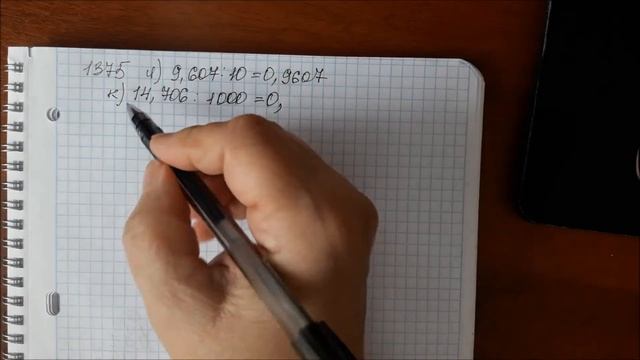 1375 и) 9,607:10=0,9607
к) 14,706:1000=0,